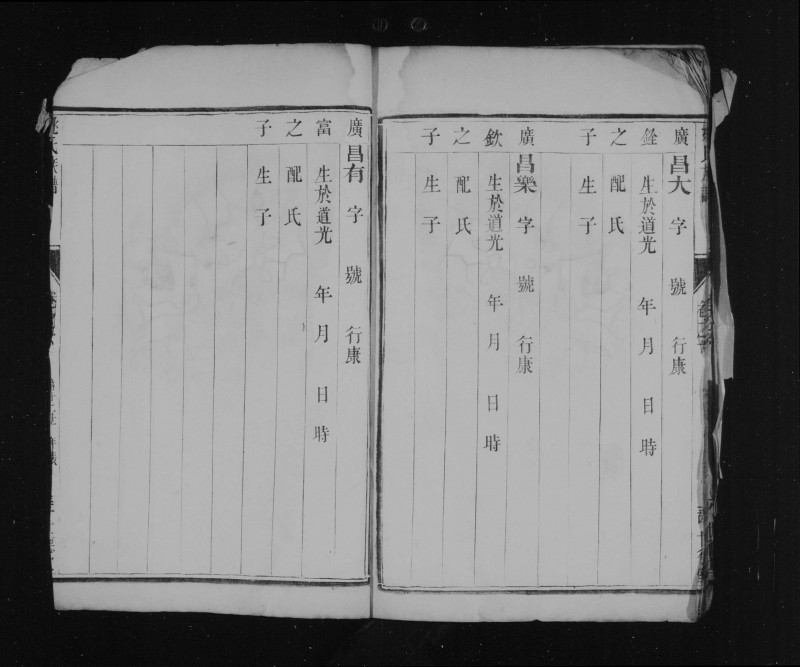 廣昌大字 號 行康
銓 生於道光 年 月 日 時
之 配 氏
子 生 子
廣昌樂字 號 行康
欽 生於道光 年 月 日 時
之 配 氏
子 生 子
廣昌有字 號 行康
富 生於道光 年 月 日 時
之 配 氏
子 生 子